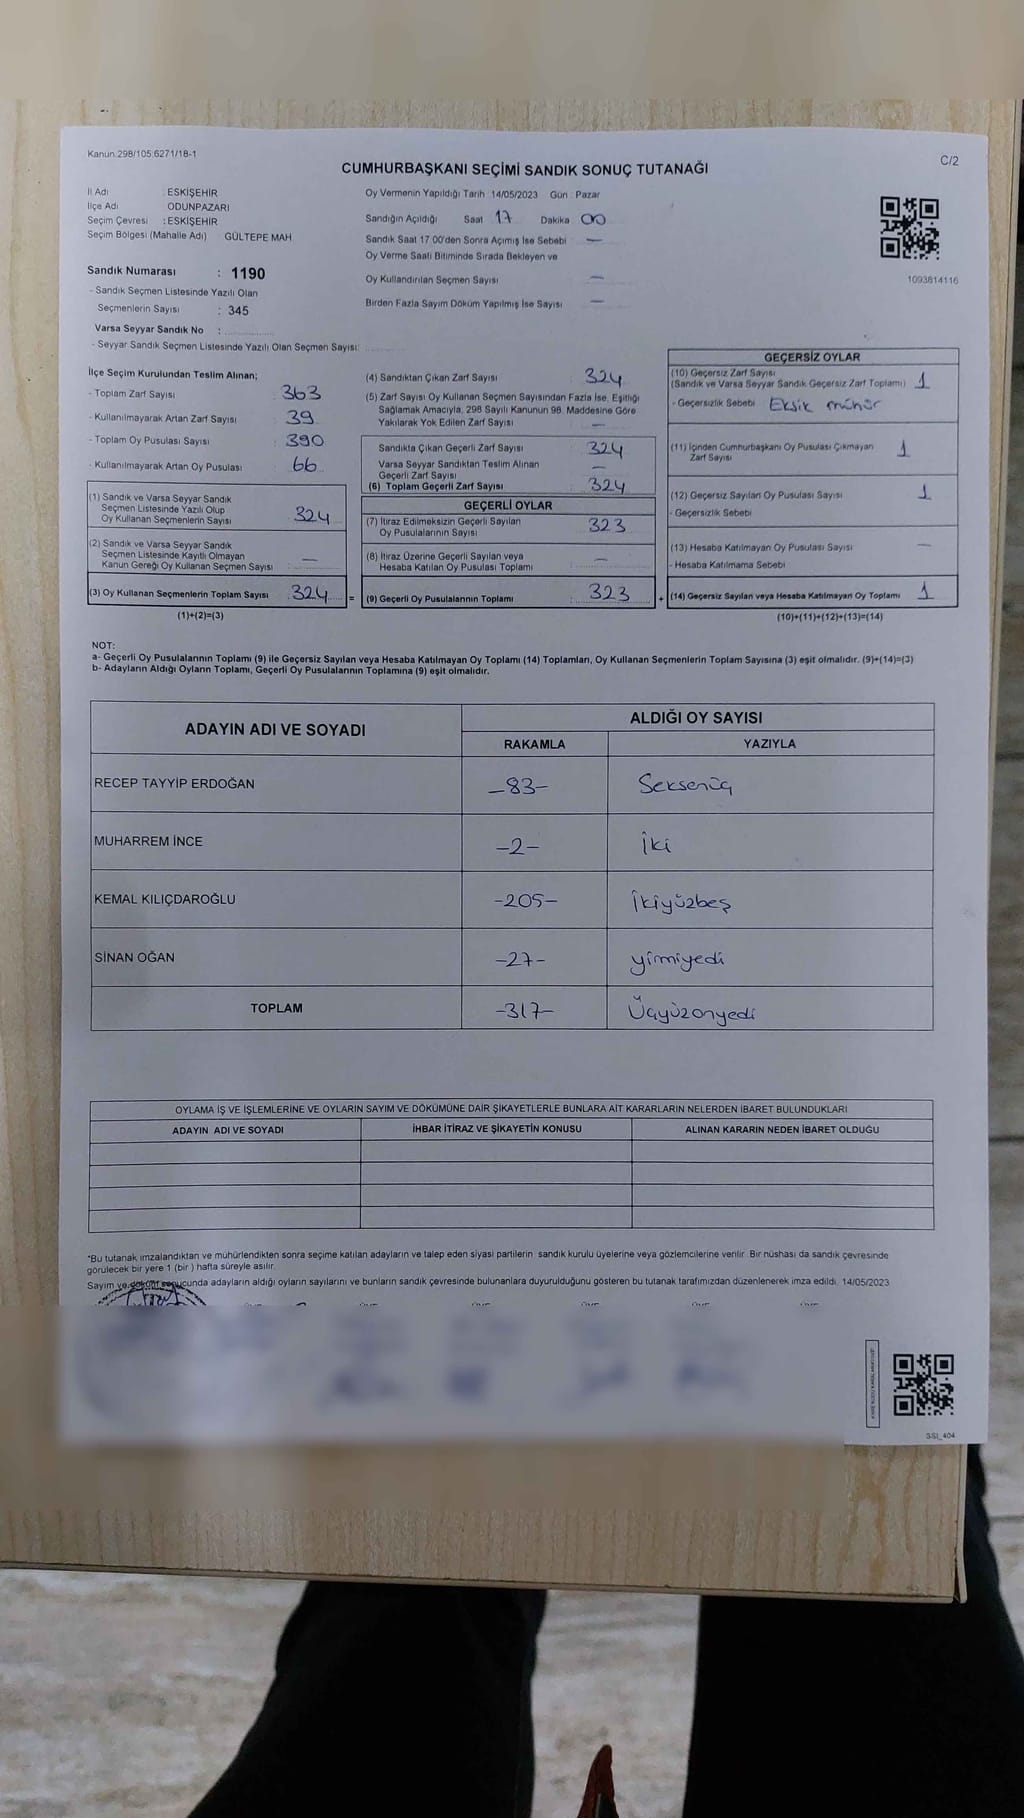 Kanun.298/105;6271/18-1
C/2
CUMHURBAŞKANI SEÇİMİ SANDIK SONUÇ TUTANAĞI
İl Adı : ESKİŞEHİR
İlçe Adı : ODUNPAZARI
Seçim Çevresi : ESKİŞEHİR
Seçim Bölgesi (Mahalle Adı) GÜLTEPE MAH
Sandık Numarası : 1190
- Sandık Seçmen Listesinde Yazılı Olan
Seçmenlerin Sayısı : 345
Varsa Seyyar Sandık No :
- Seyyar Sandık Seçmen Listesinde Yazılı Olan Seçmen Sayısı:
Oy Vermenin Yapıldığı Tarih :14/05/2023 Gün : Pazar
Sandığın Açıldığı Saat 17 Dakika 00
Sandık Saat 17:00'den Sonra Açımış İse Sebebi —
Oy Verme Saati Bitiminde Sırada Bekleyen ve
Oy Kullandırılan Seçmen Sayısı —
Birden Fazla Sayım Döküm Yapılmış İse Sayısı —
1093814116
İlçe Seçim Kurulundan Teslim Alınan;
- Toplam Zarf Sayısı 363
- Kullanılmayarak Artan Zarf Sayısı : 39
- Toplam Oy Pusulası Sayısı : 390
- Kullanılmayarak Artan Oy Pusulası : 66
(1) Sandık ve Varsa Seyyar Sandık
Seçmen Listesinde Yazılı Olup
Oy Kullanan Seçmenlerin Sayısı : 324
(2) Sandık ve Varsa Seyyar Sandık
Seçmen Listesinde Kayıtlı Olmayan
Kanun Gereği Oy Kullanan Seçmen Sayısı : —
(3) Oy Kullanan Seçmenlerin Toplam Sayısı : 324 =
(1)+(2)=(3)
(4) Sandıktan Çıkan Zarf Sayısı : 324
(5) Zarf Sayısı Oy Kullanan Seçmen Sayısından Fazla İse, Eşitliği
Sağlamak Amacıyla, 298 Sayılı Kanunun 98. Maddesine Göre
Yakılarak Yok Edilen Zarf Sayısı : —
Sandıkta Çıkan Geçerli Zarf Sayısı : 324
Varsa Seyyar Sandıktan Teslim Alınan
Geçerli Zarf Sayısı : —
(6) Toplam Geçerli Zarf Sayısı : 324
GEÇERLİ OYLAR
(7) İtiraz Edilmeksizin Geçerli Sayılan
Oy Pusulalarının Sayısı : 323
(8) İtiraz Üzerine Geçerli Sayılan veya
Hesaba Katılan Oy Pusulası Toplamı : —
(9) Geçerli Oy Pusulalarının Toplamı : 323 +
GEÇERSİZ OYLAR
(10) Geçersiz Zarf Sayısı
(Sandık ve Varsa Seyyar Sandık Geçersiz Zarf Toplamı) : 1
- Geçersizlik Sebebi : Eksik mühür
(11) İçinden Cumhurbaşkanı Oy Pusulası Çıkmayan
Zarf Sayısı 1
(12) Geçersiz Sayılan Oy Pusulası Sayısı 1
- Geçersizlik Sebebi
(13) Hesaba Katılmayan Oy Pusulası Sayısı —
- Hesaba Katılmama Sebebi
(14) Geçersiz Sayılan veya Hesaba Katılmayan Oy Toplamı 1
(10)+(11)+(12)+(13)=(14)
NOT:
a- Geçerli Oy Pusulalarının Toplamı (9) ile Geçersiz Sayılan veya Hesaba Katılmayan Oy Toplamı (14) Toplamları, Oy Kullanan Seçmenlerin Toplam Sayısına (3) eşit olmalıdır. (9)+(14)=(3)
b- Adayların Aldığı Oyların Toplamı, Geçerli Oy Pusulalarının Toplamına (9) eşit olmalıdır.
ADAYIN ADI VE SOYADI
ALDIĞI OY SAYISI
RAKAMLA YAZIYLA
RECEP TAYYİP ERDOĞAN -83- Seksenüç
MUHARREM İNCE -2- İki
KEMAL KILIÇDAROĞLU -205- İkiyüzbeş
SİNAN OĞAN -27- yirmiyedi
TOPLAM -317- Üçyüzonyedi
OYLAMA İŞ VE İŞLEMLERİNE VE OYLARIN SAYIM VE DÖKÜMÜNE DAİR ŞİKAYETLERLE BUNLARA AİT KARARLARIN NELERDEN İBARET BULUNDUKLARI
ADAYIN ADI VE SOYADI İHBAR İTİRAZ VE ŞİKAYETİN KONUSU ALINAN KARARIN NEDEN İBARET OLDUĞU
*Bu tutanak imzalandıktan ve mühürlendikten sonra seçime katılan adayların ve talep eden siyasi partilerin sandık kurulu üyelerine veya gözlemcilerine verilir. Bir nüshası da sandık çevresinde
görülecek bir yere 1 (bir ) hafta süreyle asılır.
Sayım ve döküm sonucunda adayların aldığı oyların sayılarını ve bunların sandık çevresinde bulunanlara duyurulduğunu gösteren bu tutanak tarafımızdan düzenlenerek imza edildi. 14/05/2023
SSI_404